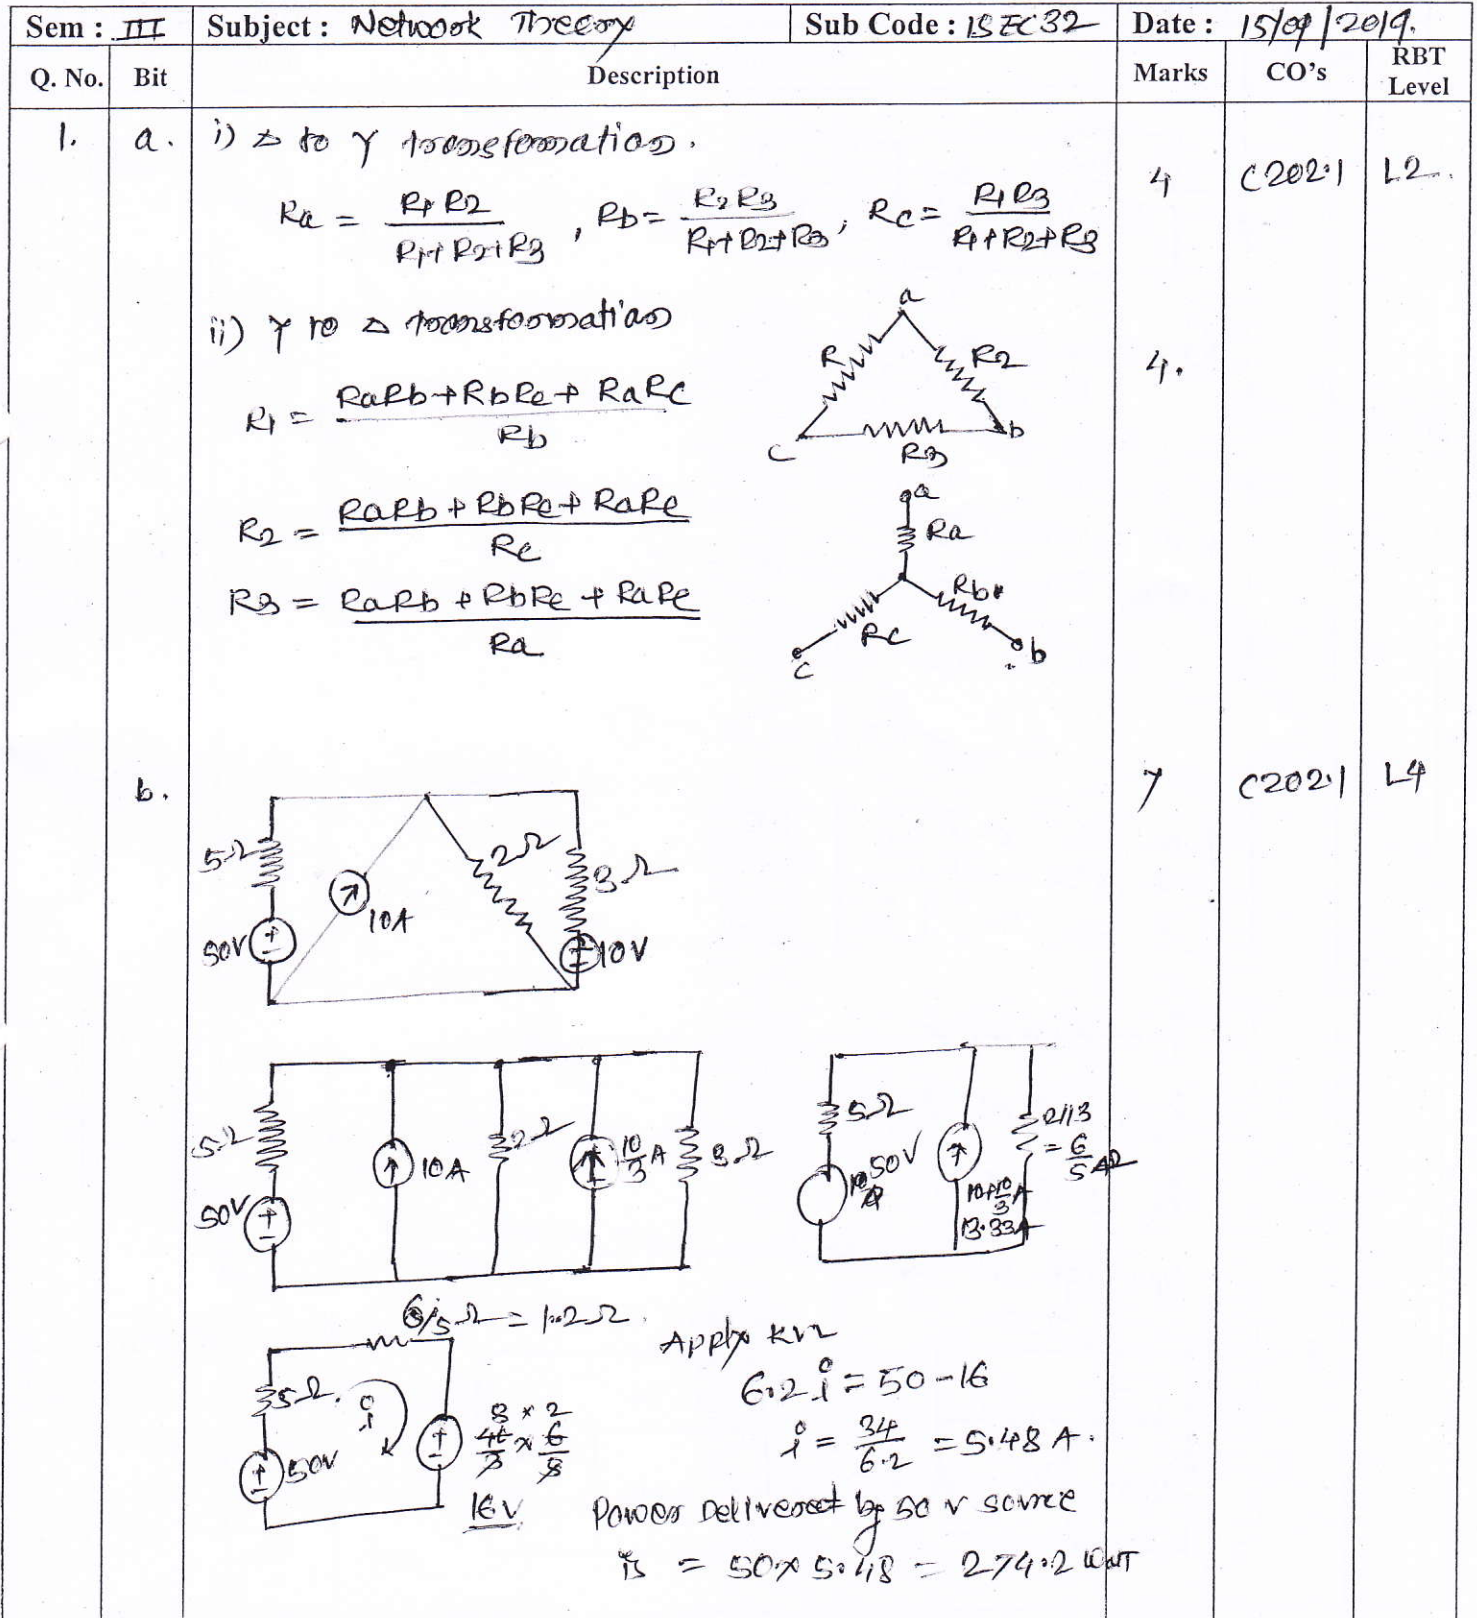 Sem : III Subject : Network Theory Sub Code : 18EC32 Date : 15/09/2019.
Q. No. Bit Description Marks CO's RBT Level
1. a. i) Δ to Y transformation. 4 C202.1 L2.
Ra = R1 R2 / R1+R2+R3 , Rb = R2 R3 / R1+R2+R3 , Rc = R1 R3 / R1+R2+R3
ii) Y to Δ transformation 4.
R1 = RaRb + RbRc + RaRc / Rb
R2 = RaRb + RbRc + RaRc / Rc
R3 = RaRb + RbRc + RaRc / Ra
a
R R2
c R3 b
a
Ra
Rb
Rc
c b
b. 7 C202.1 L4
5Ω 2Ω 3Ω
10A
50V 10V
5Ω 10A 2Ω 10/3 A 3Ω
50V
5Ω 2//3
50V = 6/5 Ω
10+10/3 A
13.33A
6/5 Ω = 1.2Ω
5Ω. i
50V
8 × 2
40/3 × 6/5
16V
Apply KVL
6.2 i = 50 - 16
i = 34 / 6.2 = 5.48 A.
Power Delivered by 50 V source
is = 50 × 5.48 = 274.2 Watt